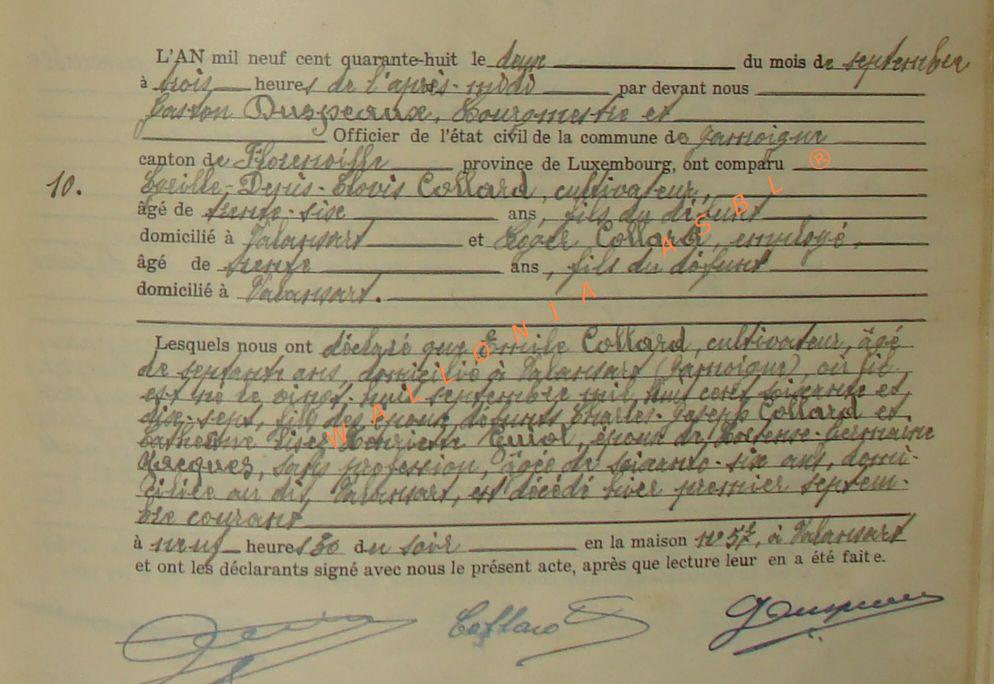 L'AN mil neuf cent quarante-huit le deux du mois de septembre
à trois heures de l'après-midi par devant nous
Gaston Duspeaux, Bourgmestre et
Officier de l'état civil de la commune de Jamoigne
canton de Florenville province de Luxembourg, ont comparu ®
10. Camille-Denis-Clovis Collard, cultivateur,
âgé de trente-six ans, fils du défunt
domicilié à Valansart et Roger Collard, employé,
âgé de trente ans, fils du défunt
domicilié à Valansart.
Lesquels nous ont déclaré que Emile Collard, cultivateur, âgé
de septante ans, domicilié à Valansart (Jamoigne), où il
est né le vingt-huit septembre mil huit cent soixante et
dix-sept, fils des époux défunts Charles-Joseph Collard et
Catherine Henriette époux de Hortense-Germaine
Jacques, sans profession, âgée de soixante-six ans, domi-
ciliée au dit Valansart, est décédé hier premier septem-
bre courant
à neuf heures 30 du soir en la maison n° 57, à Valansart
et ont les déclarants signé avec nous le présent acte, après que lecture leur en a été faite.
Collard
WALLONIA ASBL